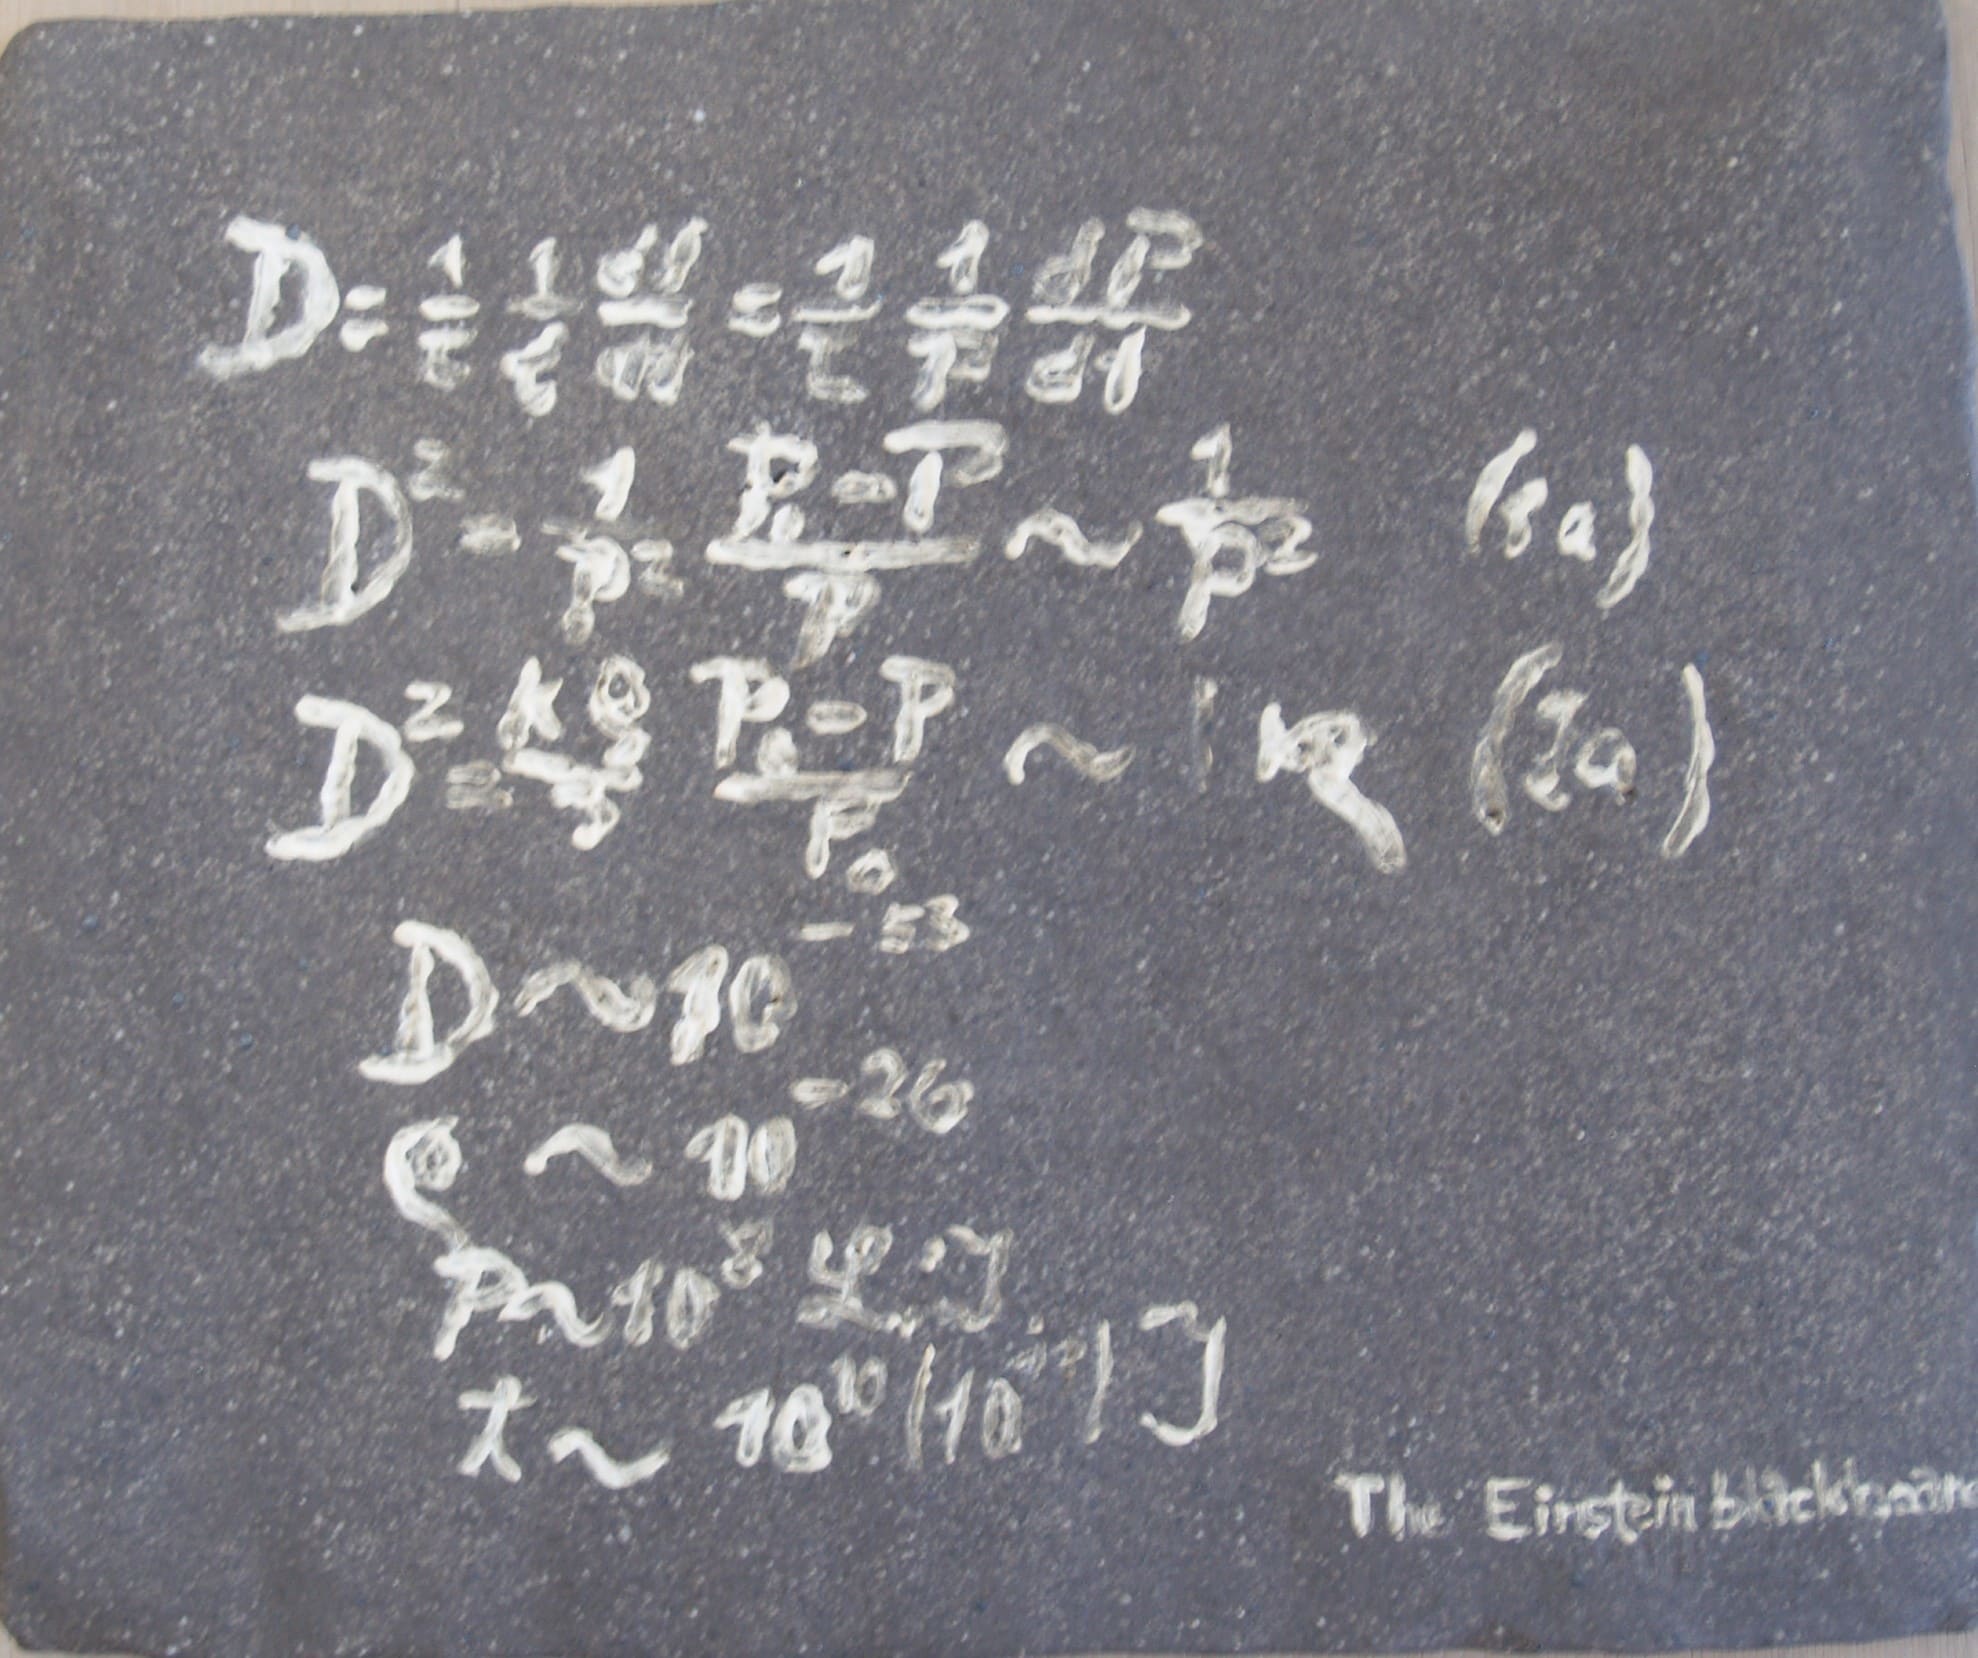 D = 1/c 1/ℓ dℓ/dt = 1/c 1/P dP/dt
D² = 1/P² P₀-P/P ~ 1/P² (1a)
D² = κρ/3 P₀-P/P₀ ~ 1 κρ (2a)
D ~ 10⁻⁵³
ρ ~ 10⁻²⁶
P ~ 10⁸ L.J
t ~ 10¹⁰ (10¹¹) J
The Einstein blackboard